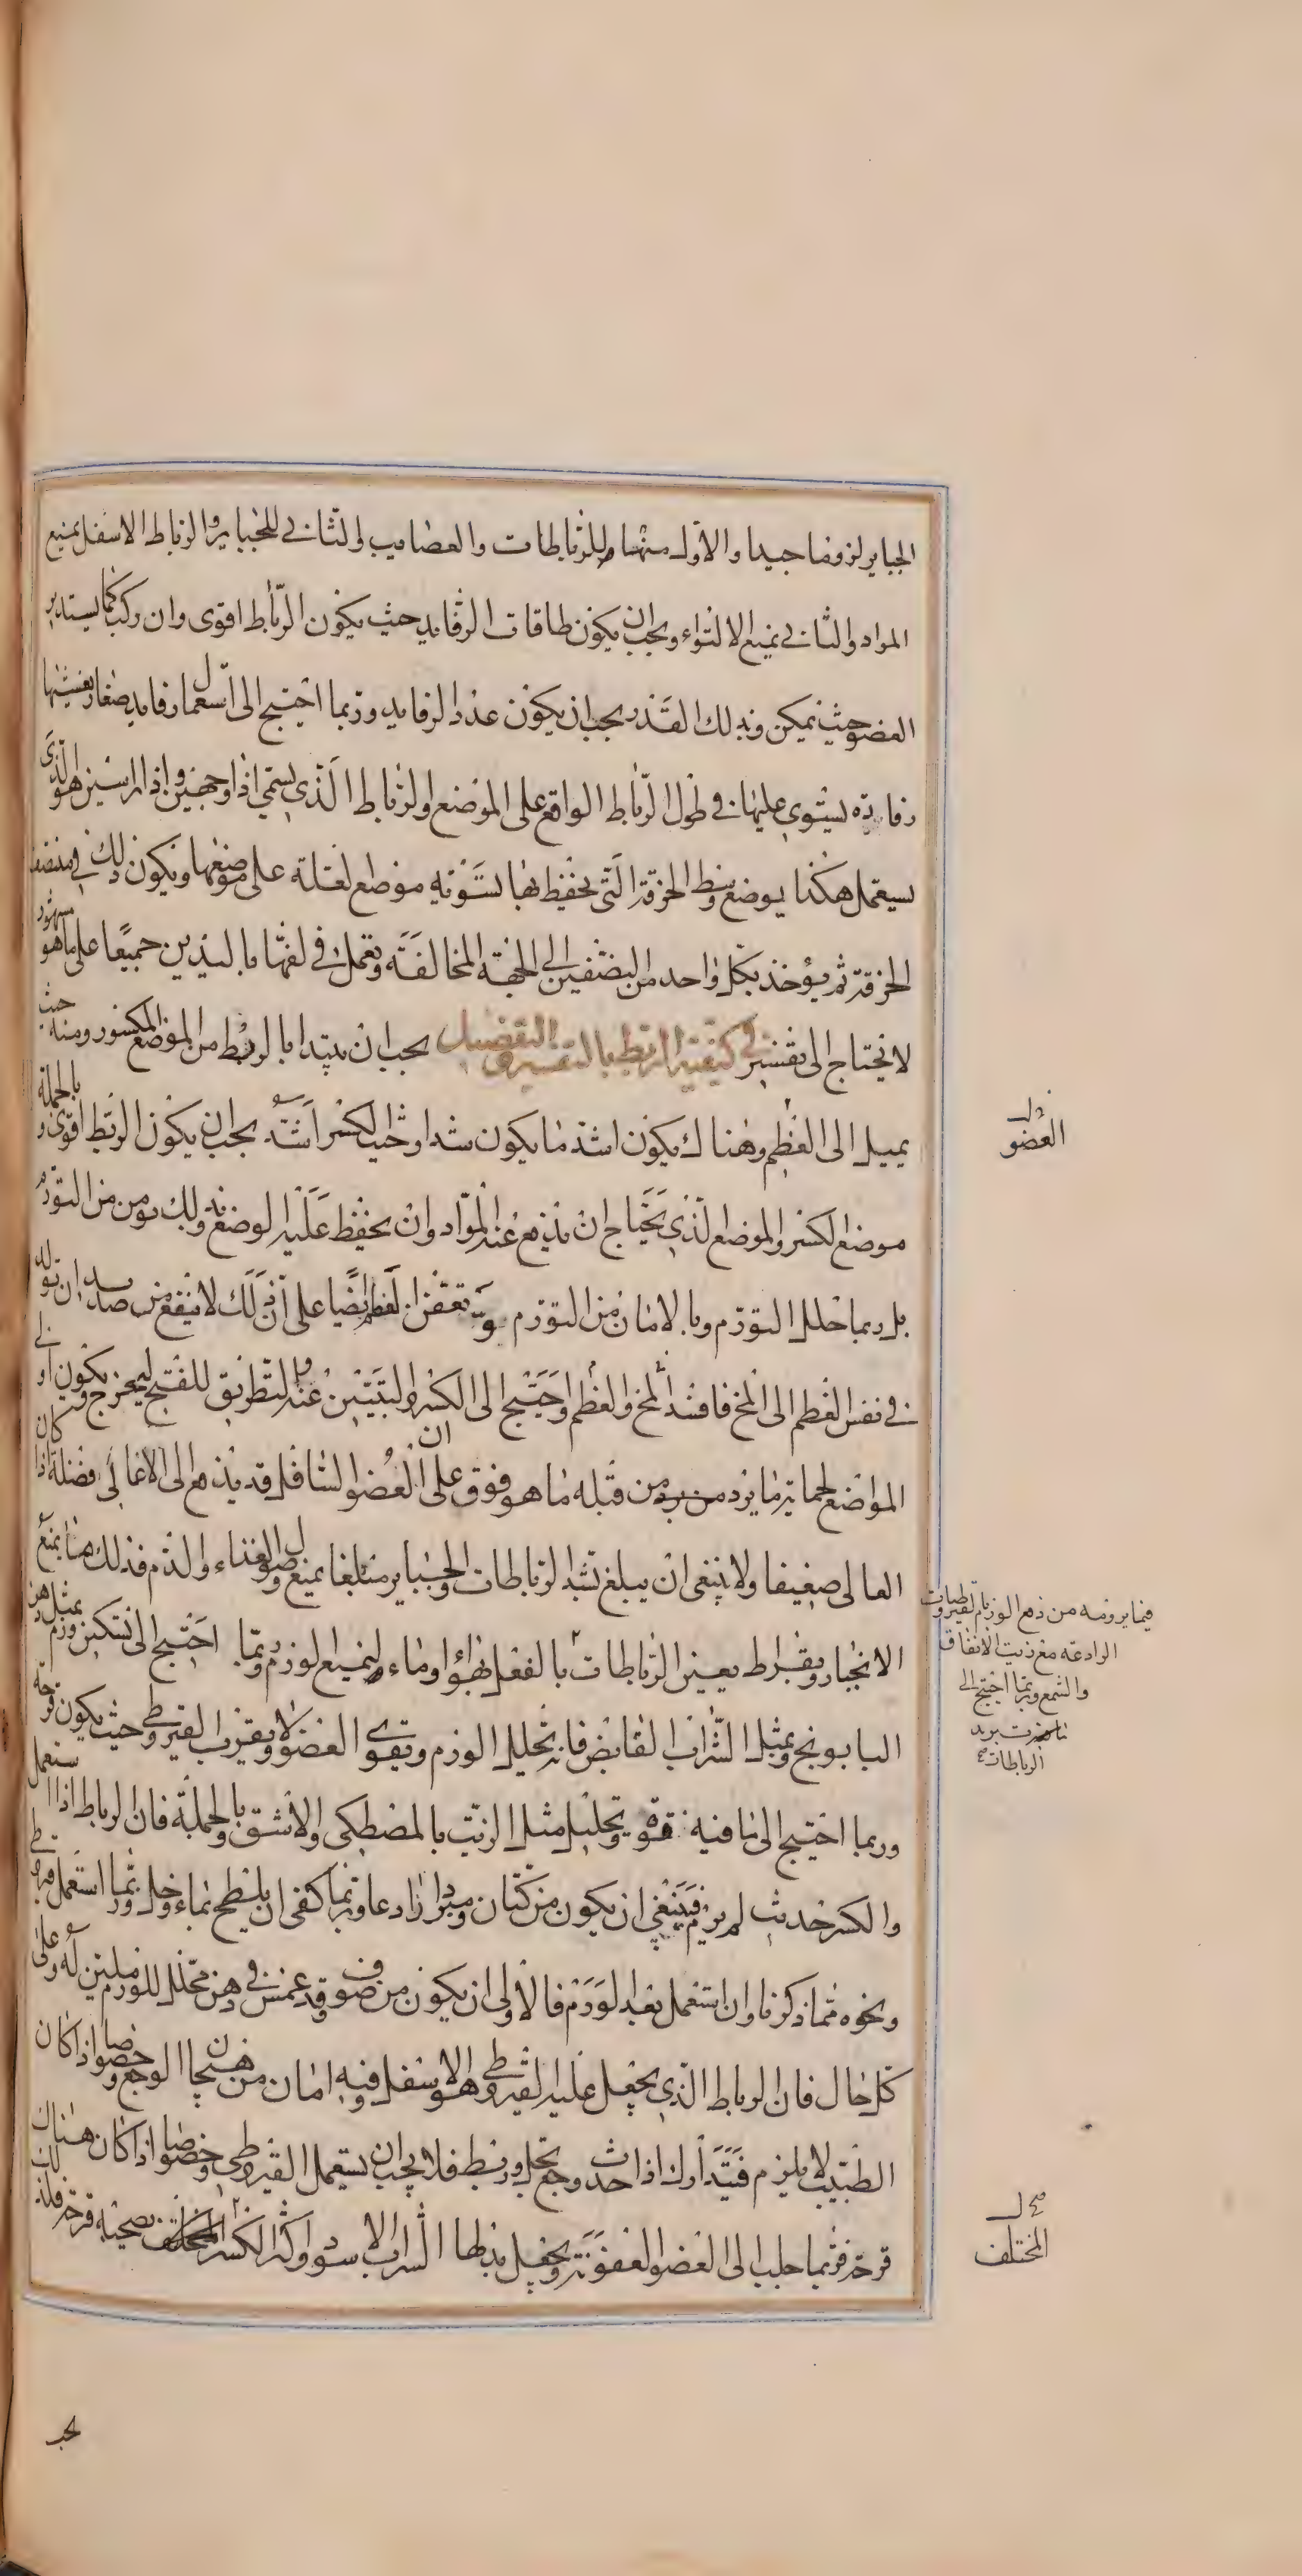 الجبايرلزوما جيدا والاول منهما للرباطات والعصايب والثاني للجباير والرباط الاسفل يمنع
المواد والثاني يمنع الالتواء ويجب ان يكون طاقات الرفايد حيث يكون الرباط اقوى وان ركب كما يستدير
العضو حيث يمكن وبذلك القدر يجب ان يكون عدد الرفايد وربما احتيج الى استعمال رفايد صغار يغشيها
رفادة يستوي عليها في طول الرباط الواقع على الموضع اولرباط الذي يسمى اذا وجهين واذا راسين هو الذي
يستعمل هكذا يوضع وسط الخرقة التي يحفظ بها تسوية موضع لعلة على موضعها ويكون ذلك في منتصف
الخرقة ثم يؤخذ بكل واحد من النصفين الى الجهة المخالفة ويعمل في لفها باليدين جميعا على ما هو مشهور
لا نحتاج الى تفسير في كيفية الربط بالتفسير والتفصيل يجب ان يبتدا بالربط من الموضع المكسور ومنه حيث
يميل الى العظم وهناك يكون اشد ما يكون شدا وحيث الكسر اشد يجب ان يكون الربط اقوى وبالجملة
موضع الكسر والموضع الذي يحتاج ان يدفع عنه المواد وان يحفظ عليه الوضع فذلك يومن من التورم
بل ربما حلل التورم وبالامان من التورم يومن تعفن العظم ايضا على ان ذلك لا ينفع من صديد ان تولد
في نفس العظم الى المخ فافسد المخ والعظم واحتيج الى الكسر والتبيين عند التطريق للقيح ليخرج ويكون او في
المواضع لحماية ما يرد من قبله ما هو فوق على ان العضو السافل قد يدفع الى الاعالي فضلة اذا كان
العالي ضعيفا ولا ينبغي ان يبلغ شد الرباطات والجباير مبلغا يمنع وصول الغذاء والدم فذلك مما يمنع
الانجبار وبقراط يعين الرباطات بالفعل بهواء وماء ليمنع الورم وربما احتيج الى تسكين ورم بمثل دهن
البابونج وبمثل الشراب القابض فانه يحلل الورم ويقوى العضو ولا يقرب القيروطي حيث يكون قرحة
وربما احتيج الى ما فيه قوة وتحليل مثل الزيت بالمصطكى والاشق وبالجملة فان الرباط اذا استعمل
والكسر حديث لم يرم فينبغي ان يكون من كتان ومبردا رادعا وربما كفى ان يلطخ بماء وخل وربما استعمل قيروطي
ونحوه مما ذكرنا وان استعمل بعد الورم فالاولى ان يكون من صوف وقد غمس في دهن محلل للورم ملين له وعلى
كل حال فان الرباط الذي يجعل عليه القيروطي هو الاسفل وفيه امان من هيجان الوجع وخصوصا اذا كان
الطبيب لا يلزم فيتدارك اذا حدث وجع بحل وربط فلا يجب ان يستعمل القيروطي وخصوصا اذا كان هناك
قرحة فربما جلب الى العضو العفونة ويجعل بدلها الشراب الاسود واكثر الكسر المختلف يصحبه قرحة فلذلك
دل
العضو
فيما يرومه من دفع الورم القيروطيات
الرادعة مع زيت الانفاق
والشمع وربما احتيج الى
برد
الرباطات
صح ل
المختلف
يجب